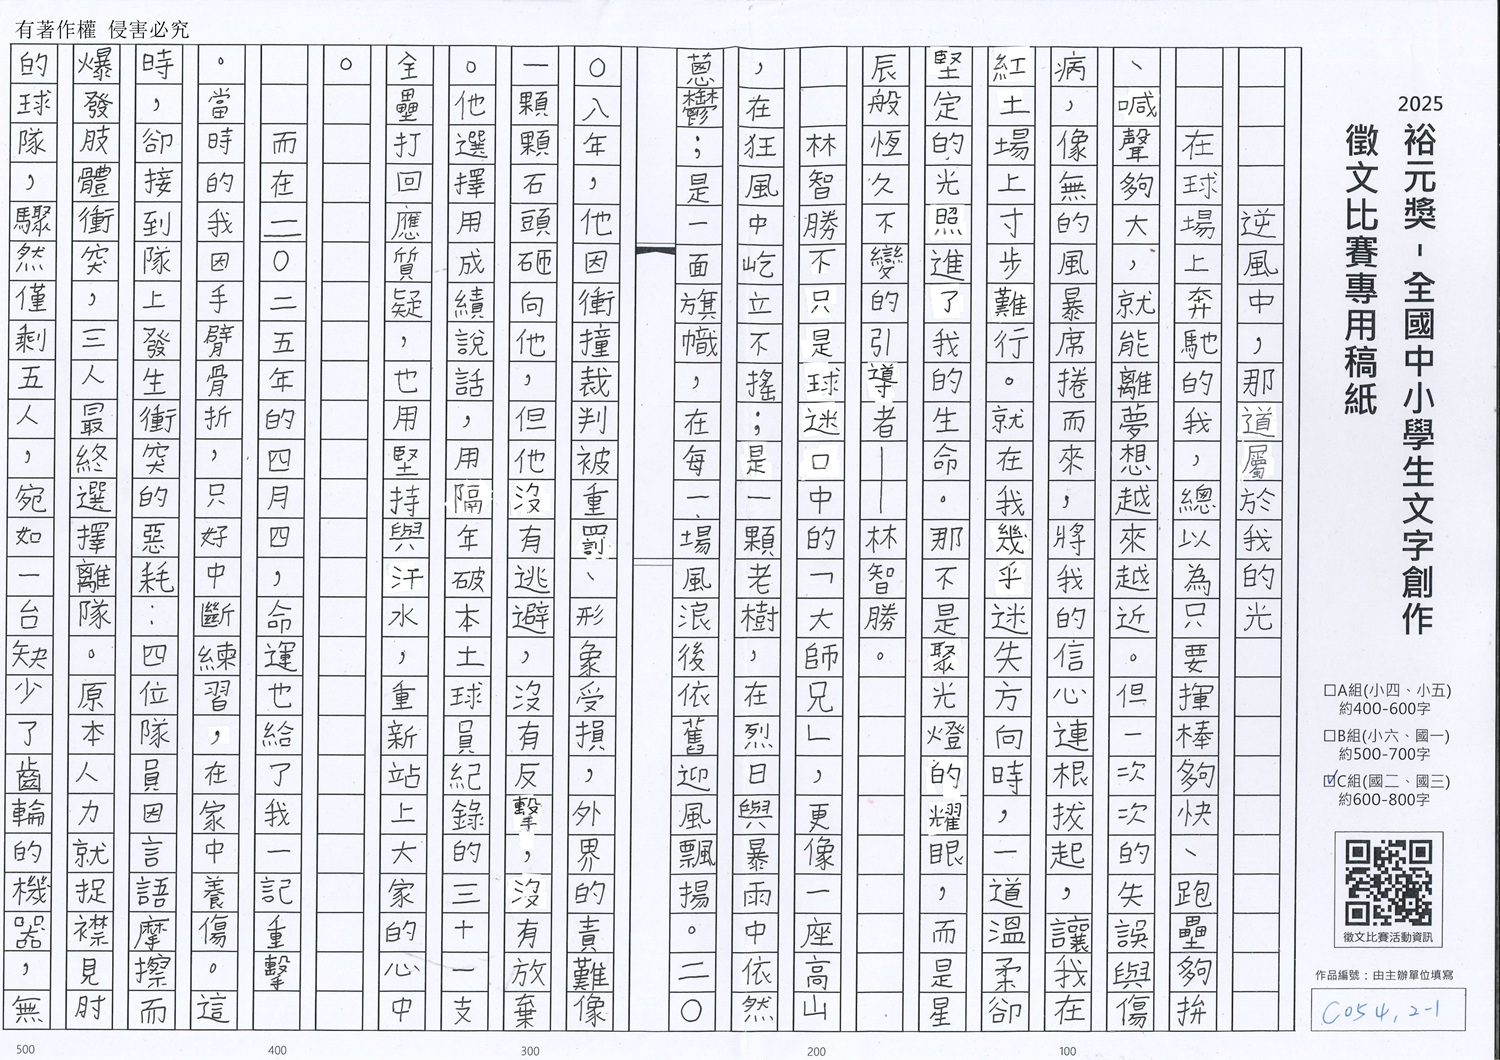 有著作權 侵害必究
2025
裕元獎-全國中小學生文字創作
徵文比賽專用稿紙
□A組(小四、小五)
約400-600字
□B組(小六、國一)
約500-700字
☑C組(國二、國三)
約600-800字
徵文比賽活動資訊
作品編號：由主辦單位填寫
C054,2-1
逆風中，那道屬於我的光
在球場上奔馳的我，總以為只要揮棒夠快、跑壘夠拚
、喊聲夠大，就能離夢想越來越近。但一次次的失誤與傷
病，像無的風暴席捲而來，將我的信心連根拔起，讓我在
紅土場上寸步難行。就在我幾乎迷失方向時，一道溫柔卻
堅定的光照進了我的生命。那不是聚光燈的耀眼，而是星
辰般恆久不變的引導者——林智勝。
林智勝不只是球迷口中的「大師兄」，更像一座高山
，在狂風中屹立不搖；是一顆老樹，在烈日與暴雨中依然
蔥鬱；是一面旗幟，在每一場風浪後依舊迎風飄揚。二〇
〇八年，他因衝撞裁判被重罰、形象受損，外界的責難像
一顆顆石頭砸向他，但他沒有逃避，沒有反擊，沒有放棄
。他選擇用成績說話，用隔年破本土球員紀錄的三十一支
全壘打回應質疑，也用堅持與汗水，重新站上大家的心中
。
而在二〇二五年的四月四，命運也給了我一記重擊
。當時的我因手臂骨折，只好中斷練習，在家中養傷。這
時，卻接到隊上發生衝突的惡耗：四位隊員因言語摩擦而
爆發肢體衝突，三人最終選擇離隊。原本人力就捉襟見肘
的球隊，驟然僅剩五人，宛如一台缺少了齒輪的機器，無
100
200
300
400
500